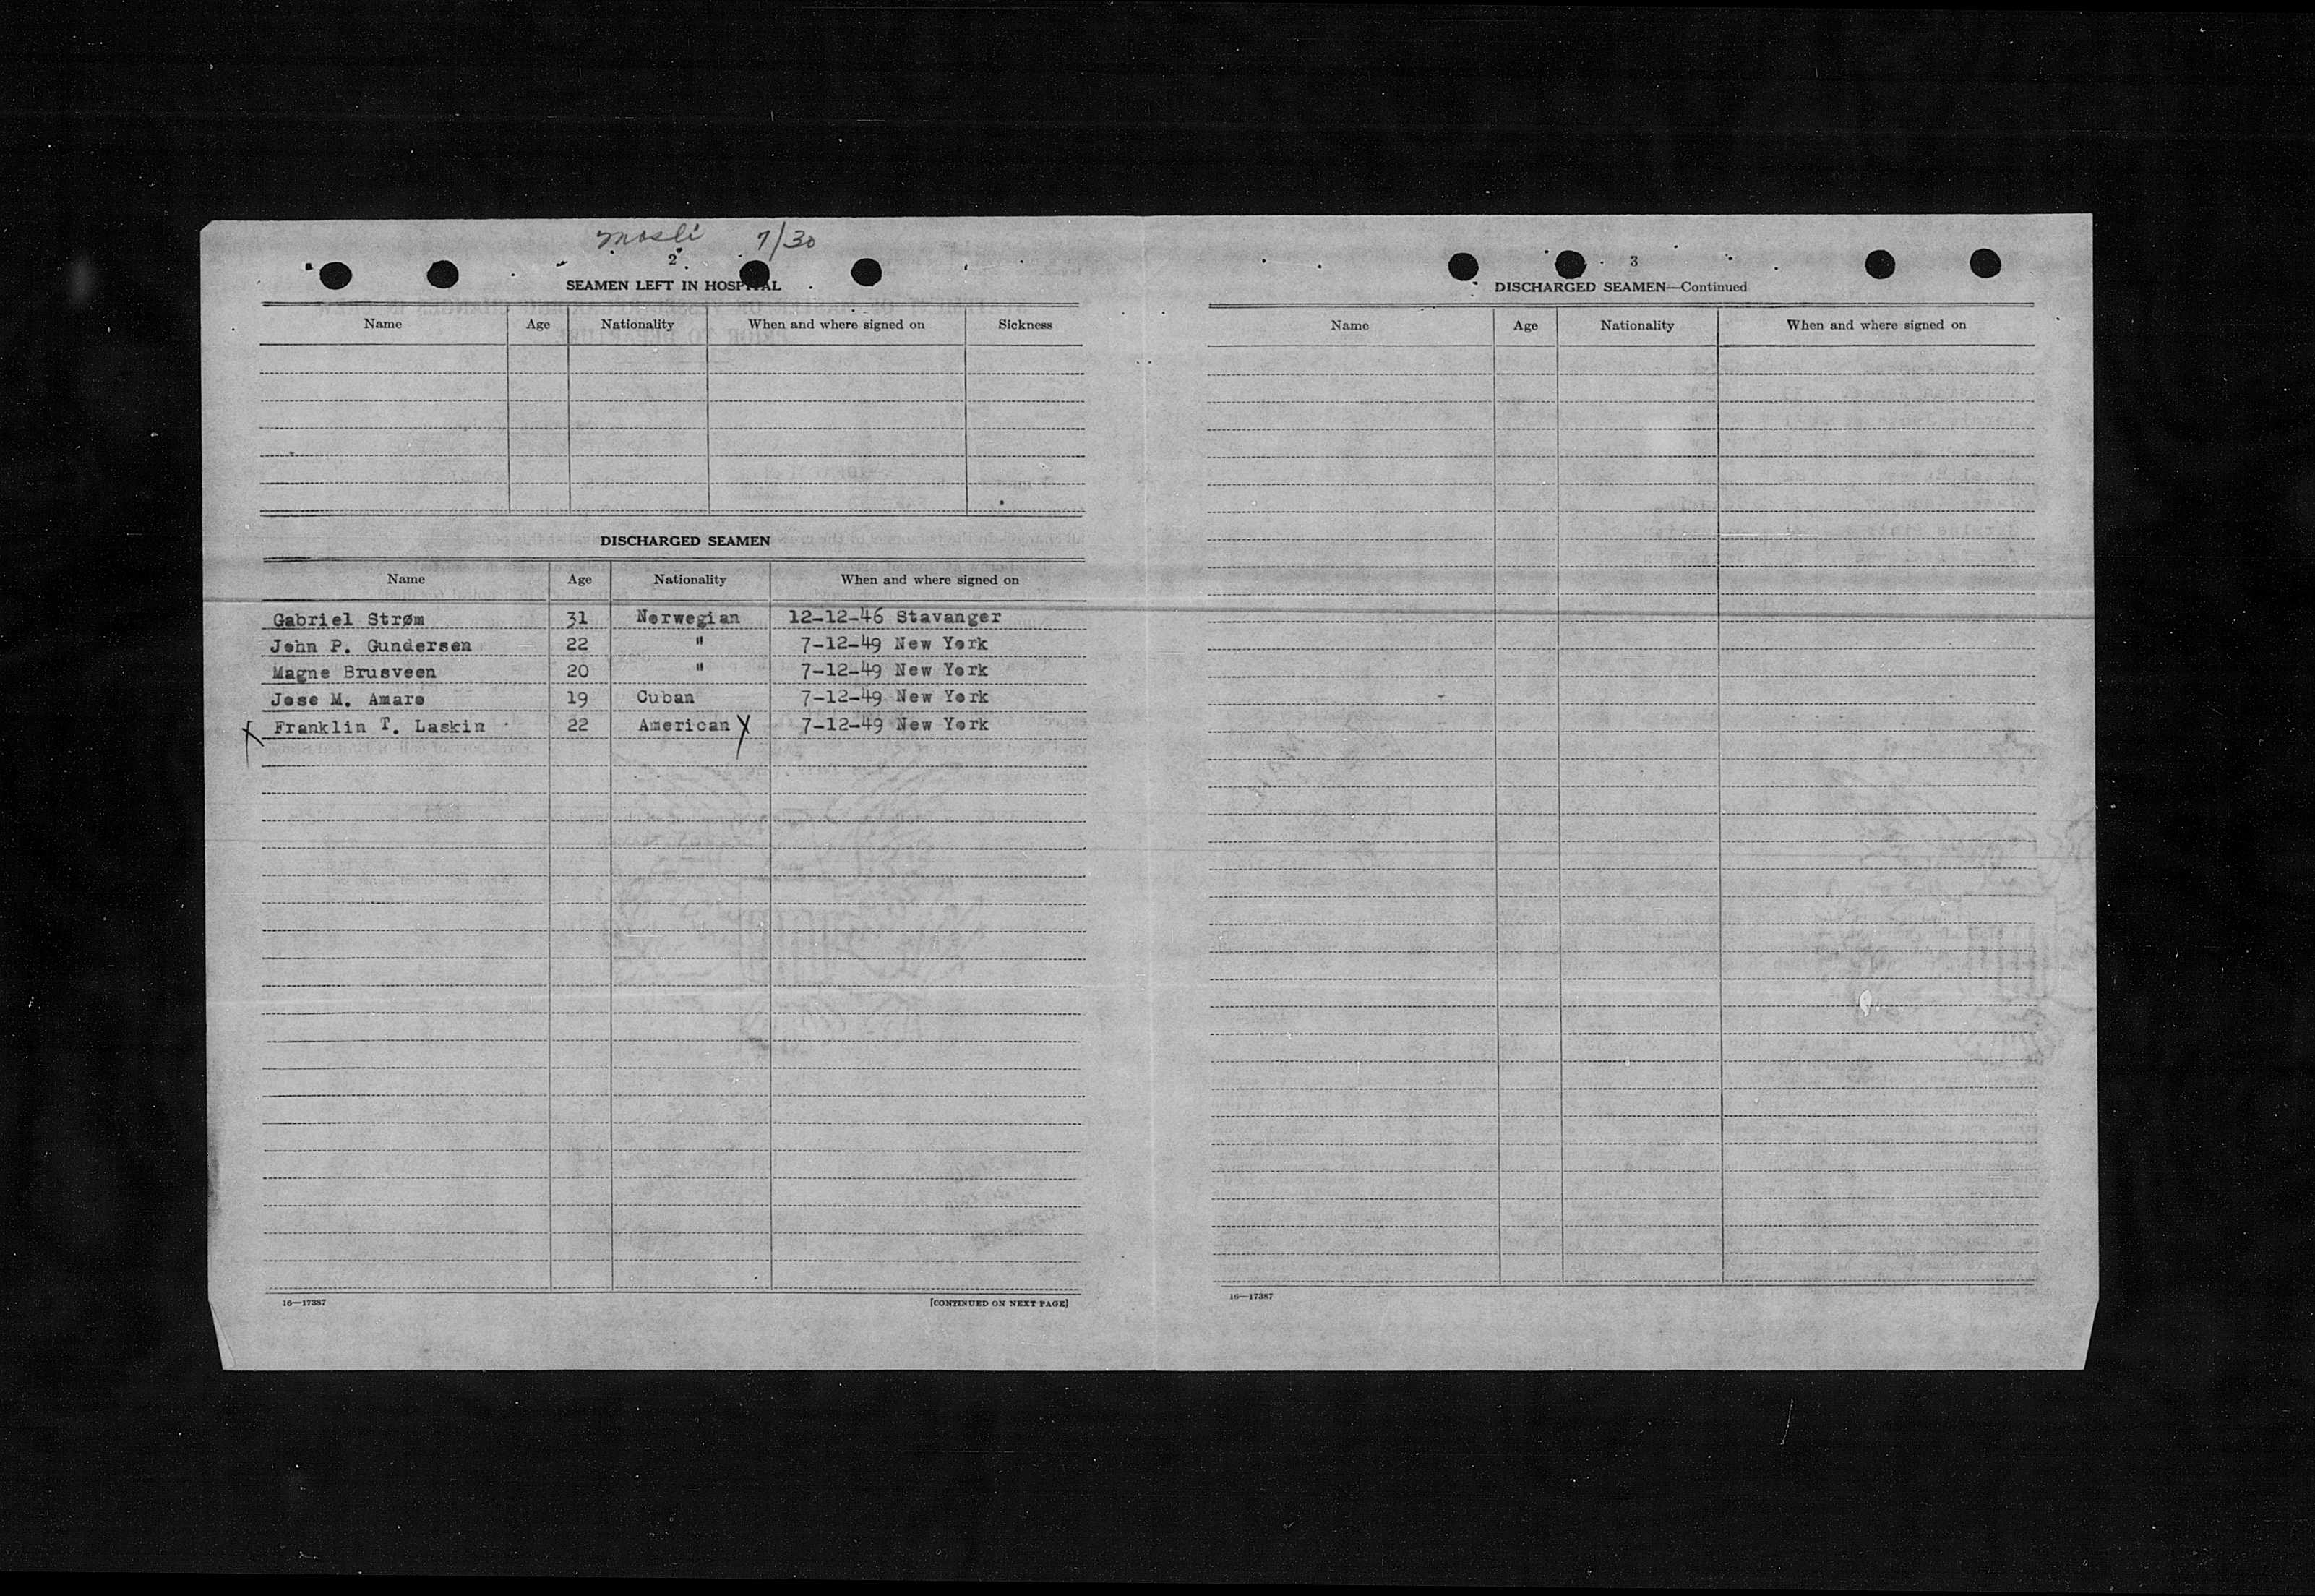 Mosli 7/30
2
SEAMEN LEFT IN HOSPITAL
Name Age Nationality When and where signed on Sickness
DISCHARGED SEAMEN
Name Age Nationality When and where signed on
Gabriel Strøm 31 Norwegian 12-12-46 Stavanger
John P. Gundersen 22 " 7-12-49 New York
Magne Brusveen 20 " 7-12-49 New York
Jose M. Amaro 19 Cuban 7-12-49 New York
X Franklin T. Laskin 22 American X 7-12-49 New York
16—17387 [CONTINUED ON NEXT PAGE]
3
DISCHARGED SEAMEN—Continued
Name Age Nationality When and where signed on
16—17387